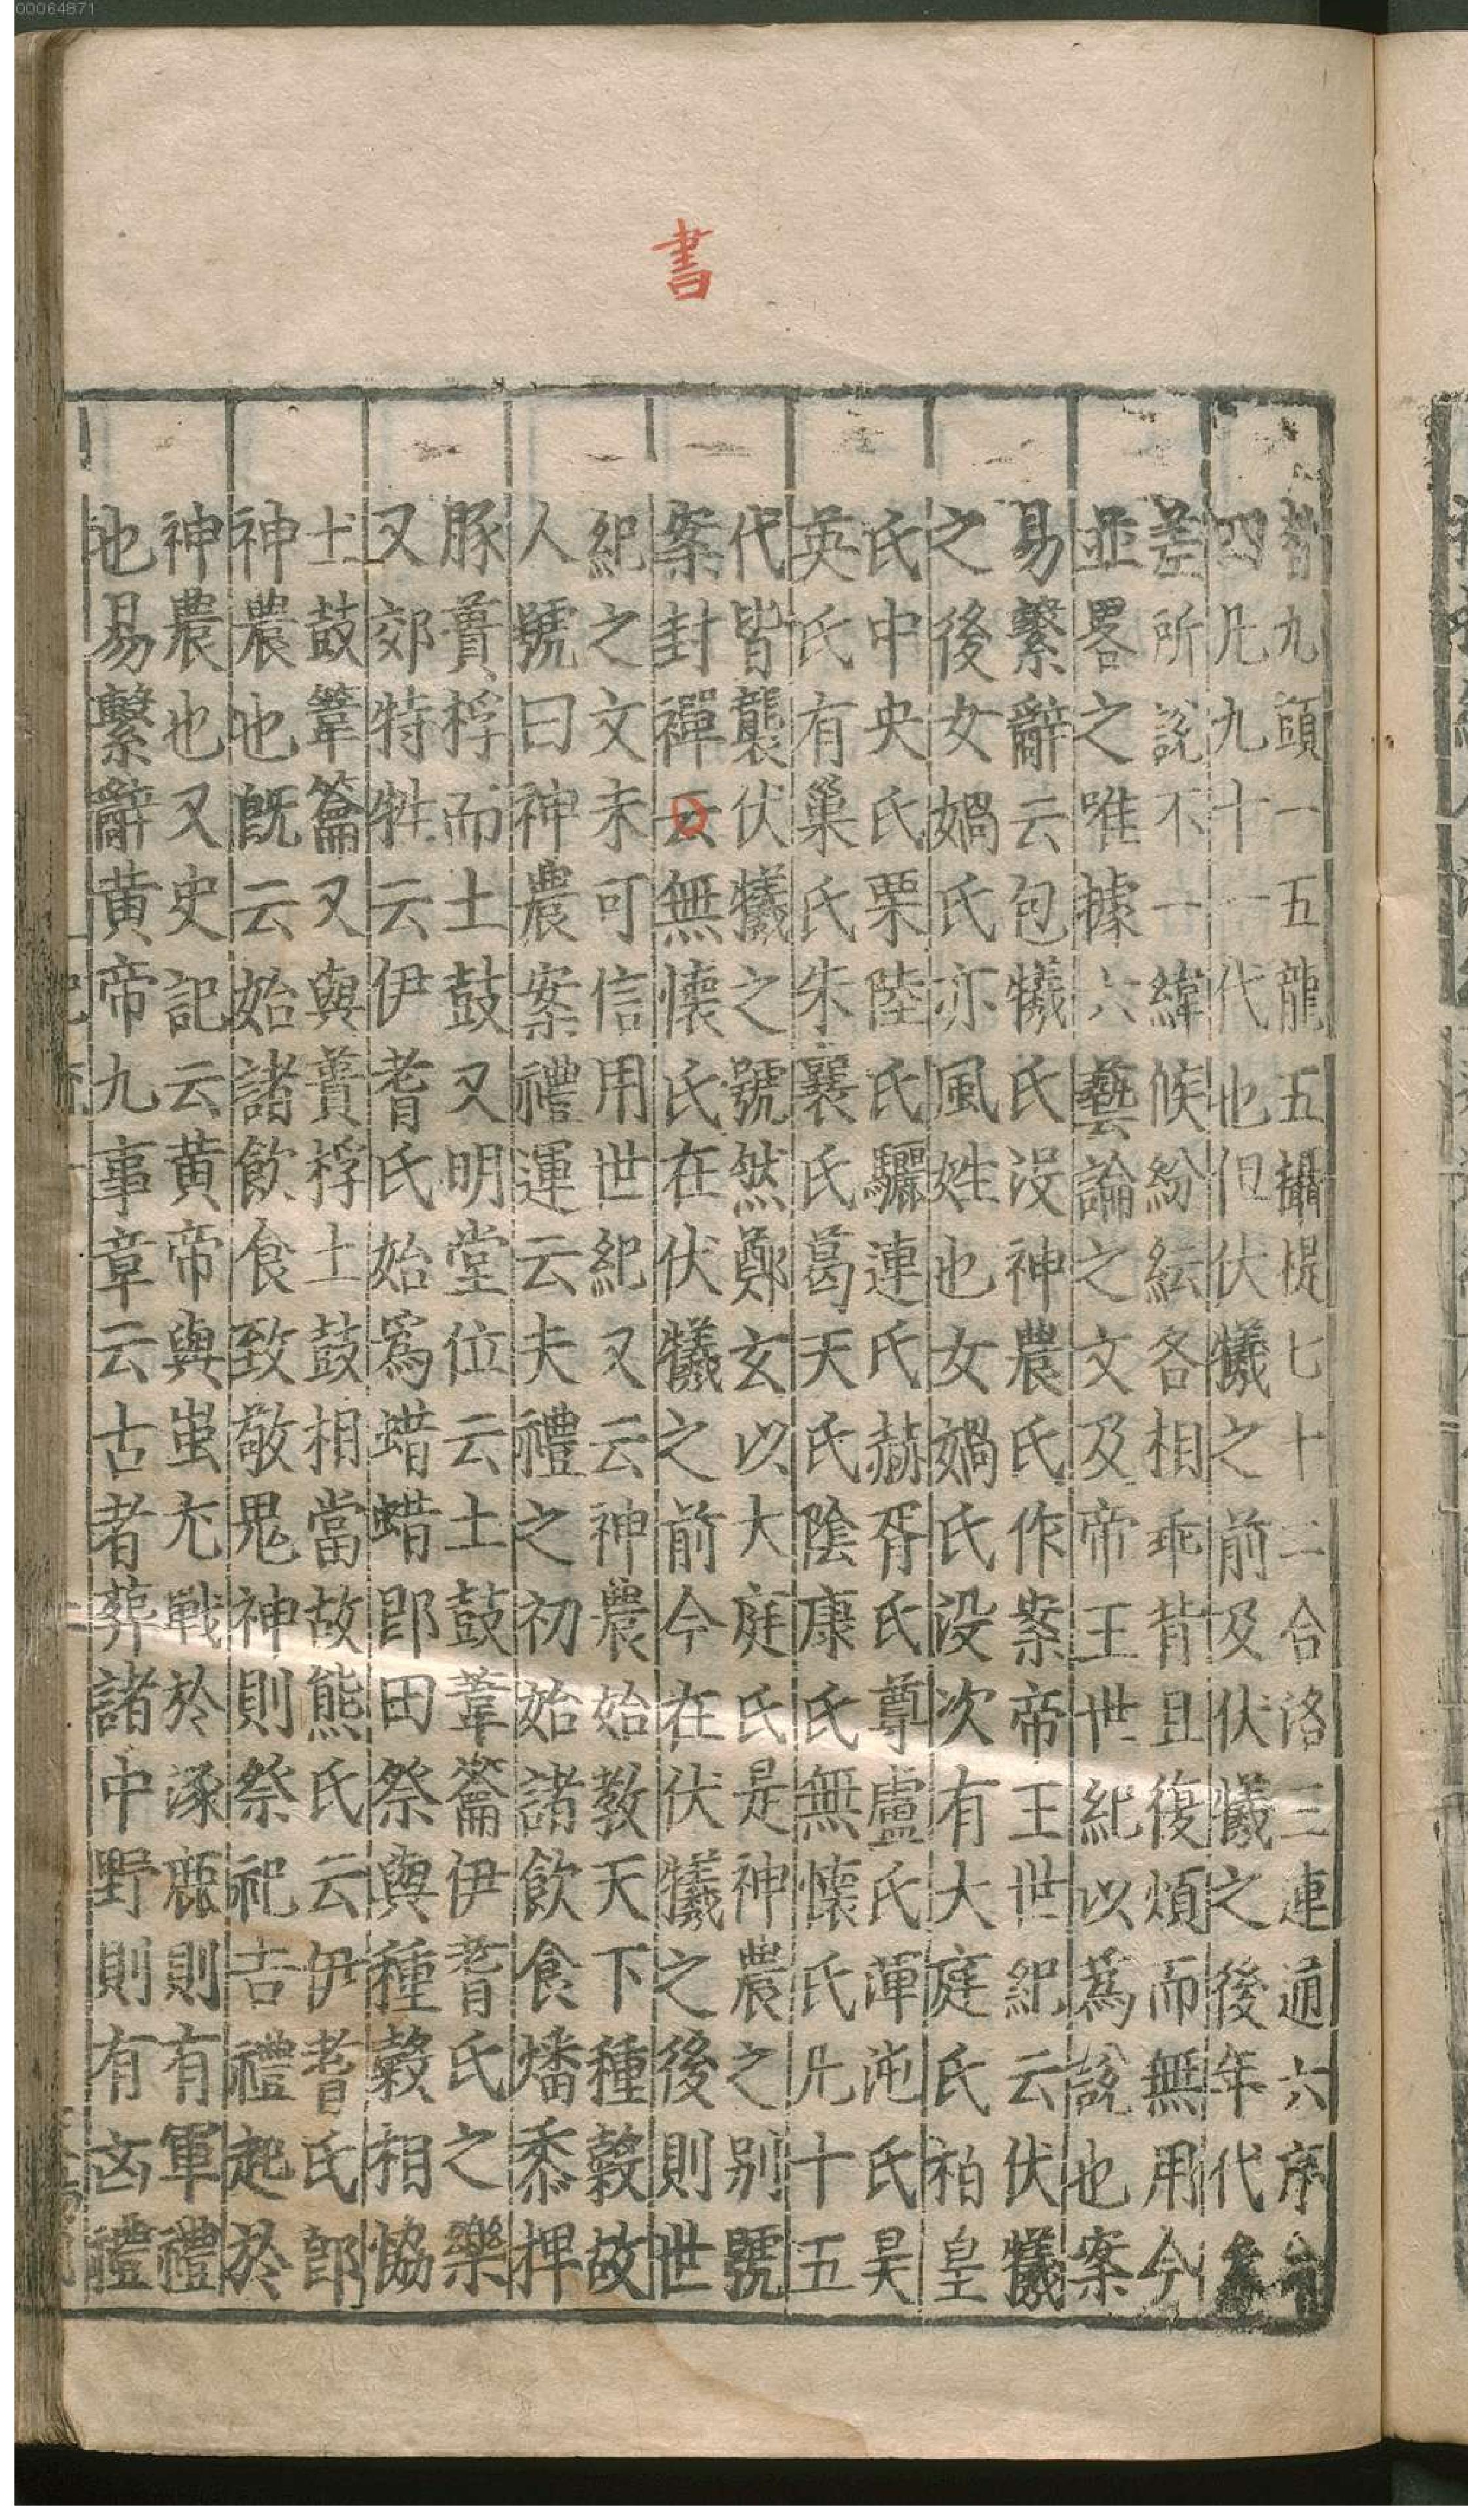 00064871
書
九頭一五龍五攝提七十二合洛三連通六序
四凡九十一代也但伏犧之前及伏犧之後年代
差所說不一緯候紛紜各相乖背且復煩而無用今
並畧之唯據六藝論之文及帝王世紀以爲說也案
易繫辭云包犧氏没神農氏作案帝王世紀云伏犧
之後女媧氏亦風姓也女媧氏没次有大庭氏柏皇
氏中央氏栗陸氏驪連氏赫胥氏尊盧氏渾沌氏昊
英氏有巢氏朱襄氏葛天氏陰康氏無懷氏凡十五
代皆襲伏犧之號然鄭玄以大庭氏是神農之别號
案封禪云無懷氏在伏犧之前今在伏犧之後則世
紀之文未可信用世紀又云神農始教天下種穀故
人號曰神農案禮運云夫禮之初始諸飲食燔黍捭
豚蕢桴而土鼓又明堂位云土鼓葦籥伊耆氏之樂
又郊特牲云伊耆氏始爲蜡蜡即田祭與種穀相協
土鼓葦籥又與蕢桴土鼓相當故熊氏云伊耆氏即
神農也既云始諸飲食致敬鬼神則祭祀吉禮起於
神農也又史記云黄帝與蚩尤戰於涿鹿則有軍禮
也易繫辭黄帝九事章云古者葬諸中野則有凶禮